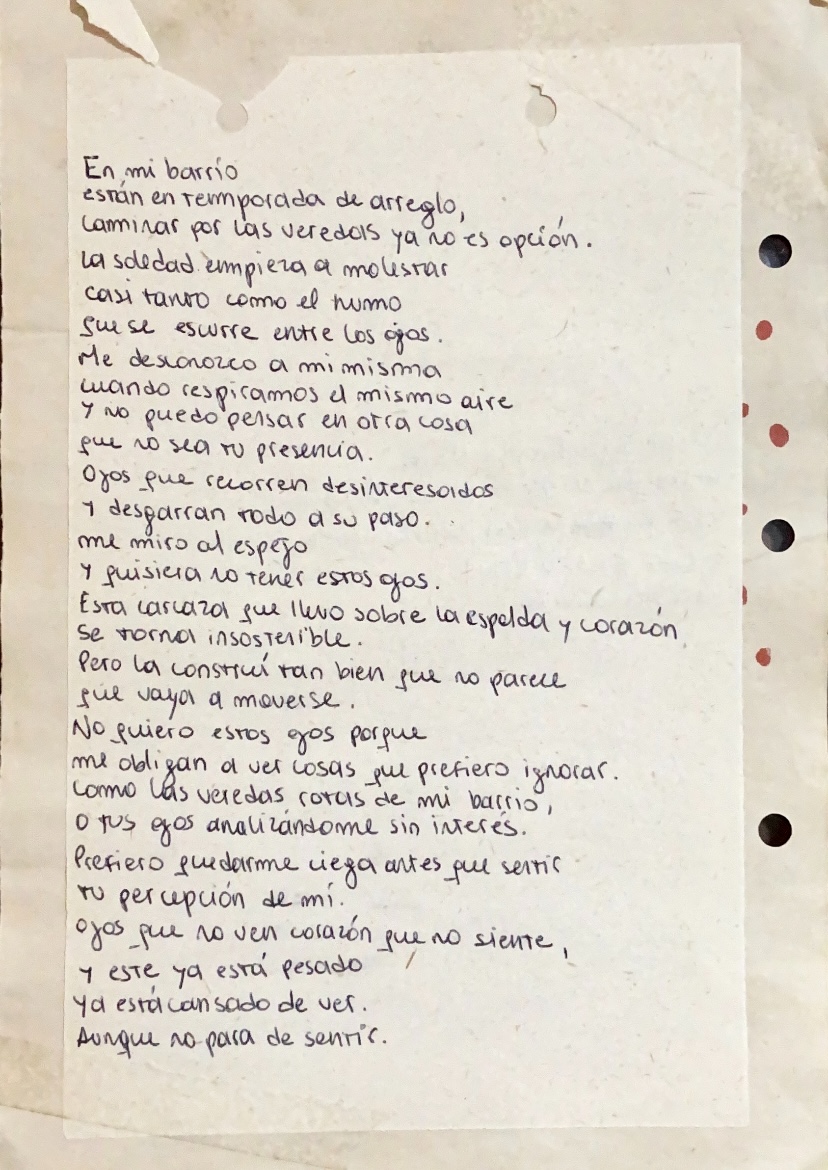 En mi barrio
están en temporada de arreglo,
caminar por las veredas ya no es opción.
La soledad empieza a molestar
casi tanto como el humo
que se escurre entre los ojos.
Me desconozco a mi misma
cuando respiramos el mismo aire
y no puedo pensar en otra cosa
que no sea tu presencia.
Ojos que recorren desinteresados
y desgarran todo a su paso.
me miro al espejo
y quisiera no tener estos ojos.
Esta carcaza que llevo sobre la espalda y corazón
se torna insostenible.
Pero la construí tan bien que no parece
que vaya a moverse.
No quiero estos ojos porque
me obligan a ver cosas que prefiero ignorar.
Como las veredas rotas de mi barrio,
o tus ojos analizándome sin interés.
Prefiero quedarme ciega antes que sentir
tu percepción de mí.
Ojos que no ven corazón que no siente,
y este ya está pesado
ya está cansado de ver.
Aunque no para de sentir.